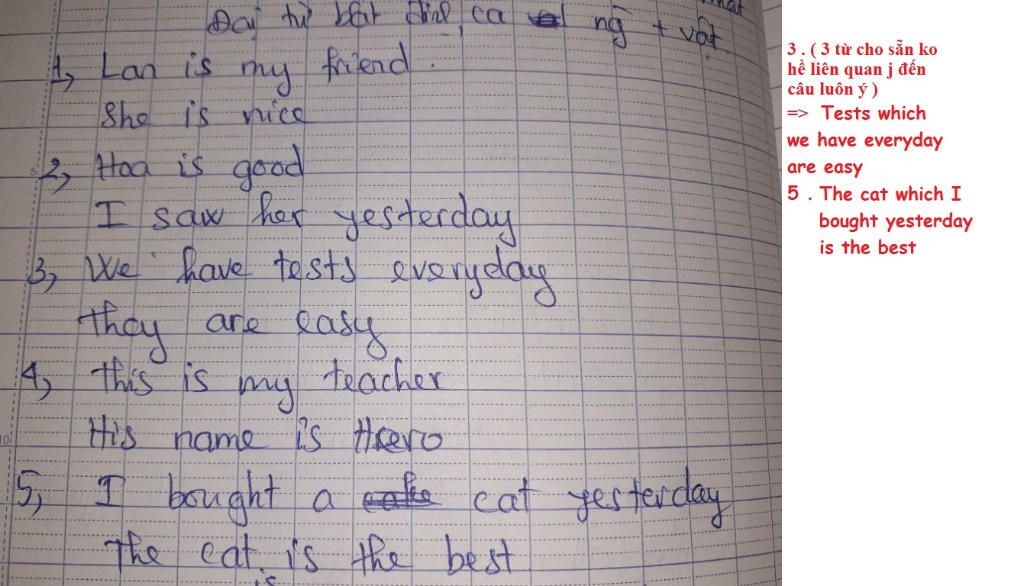 Đại từ bất định ca ng + vật
1, Lan is my friend.
She is nice
2, Hoa is good
I saw her yesterday
3, We have tests everyday
they are easy
4, this is my teacher
His name is
5, I bought a cat yesterday
The cat is the best
is
3 . ( 3 từ cho sẵn ko
hề liên quan j đến
câu luôn ý )
=> Tests which
we have everyday
are easy
5 . The cat which I
bought yesterday
is the best